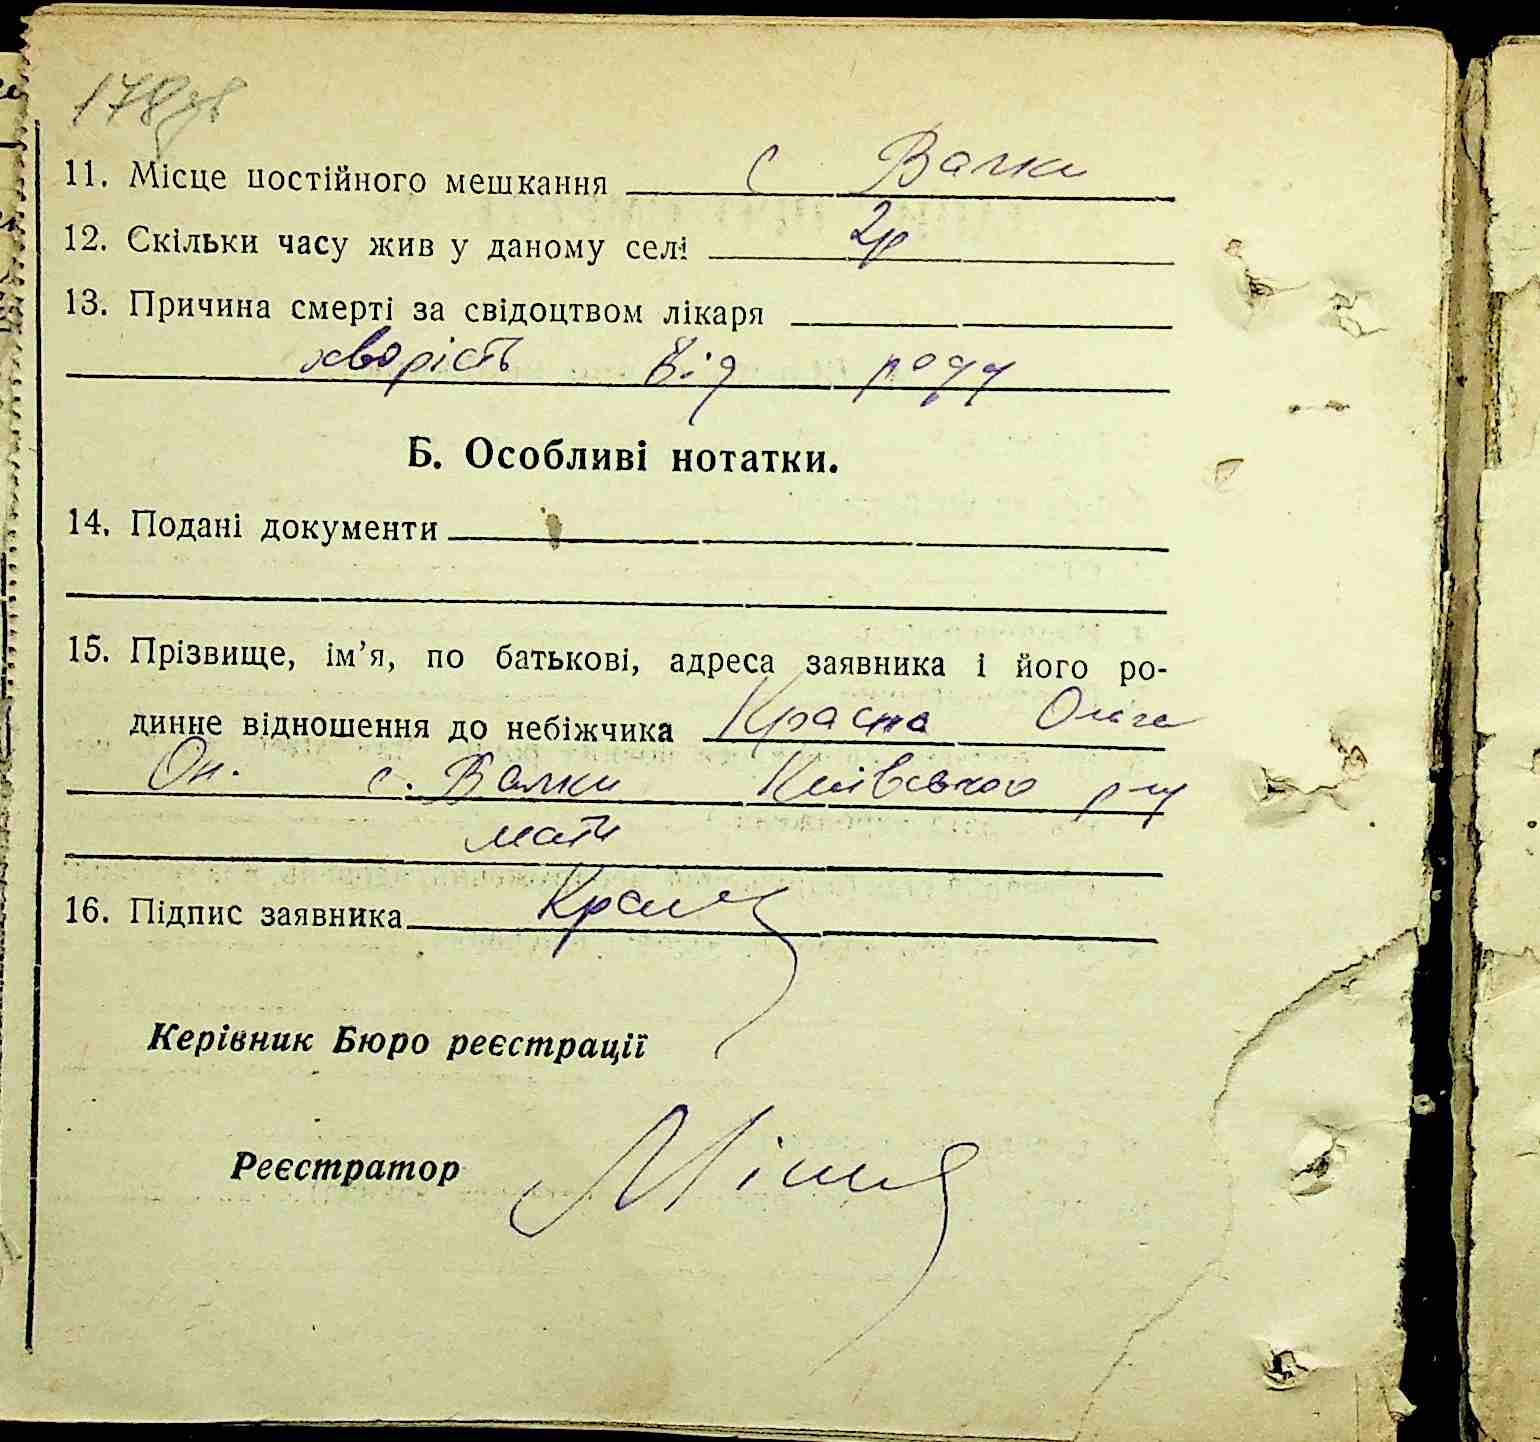 178зв
11. Місце постійного мешкання с Валки
12. Скільки часу жив у даному селі 2р
13. Причина смерті за свідоцтвом лікаря
хворість від роду
Б. Особливі нотатки.
14. Подані документи
15. Прізвище, ім’я, по батькові, адреса заявника і його ро-
динне відношення до небіжчика Красна Ольга
с. Валки Київського р-ну
мати
16. Підпис заявника
Керівник Бюро реєстрації
Реєстратор